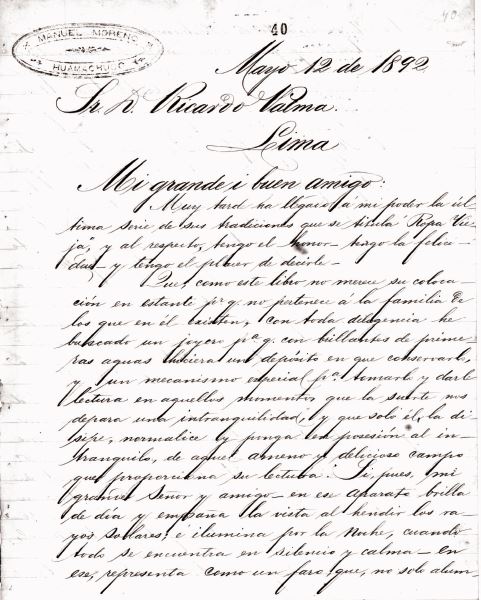 40
40
MANUEL MORENO
HUAMACHUCO
Mayo 12 de 1892
Sr. D. Ricardo Palma.
Lima
Mi grande i buen amigo:
Muy tard ha llegado á mi poder la úl-
tima serie de sus tradiciones que se titula Ropa Vie-
ja, y al respecto, tengo el honor - tengo la felici-
dad - y tengo el placer de decirle -
Que como este libro no merece su coloca-
ción en estante pr. q. no pertenece á la familia de
los que en él existen, con toda diligencia he
buscado un joyero pa. q. con brillantes de prime-
ras aguas hiciera un depósito en que conservarle,
y un mecanismo especial pa. tomarle y darle
lectura en aquellos momentos que la suerte nos
depara una intranquilidad, y que solo él, la di-
sipe, normalice y ponga en posesión al in-
tranquilo, de aquel ameno y delicioso campo
que proporciona su lectura. Si, pues, mi
grande Señor y amigo - en ese aparato brilla
de día y empaña la vista al hendir los ra-
yos sollares; e ilumina por la noche, cuando
todo se encuentra en silencio y calma - en
ese, representa como un faro, que, no solo alum-